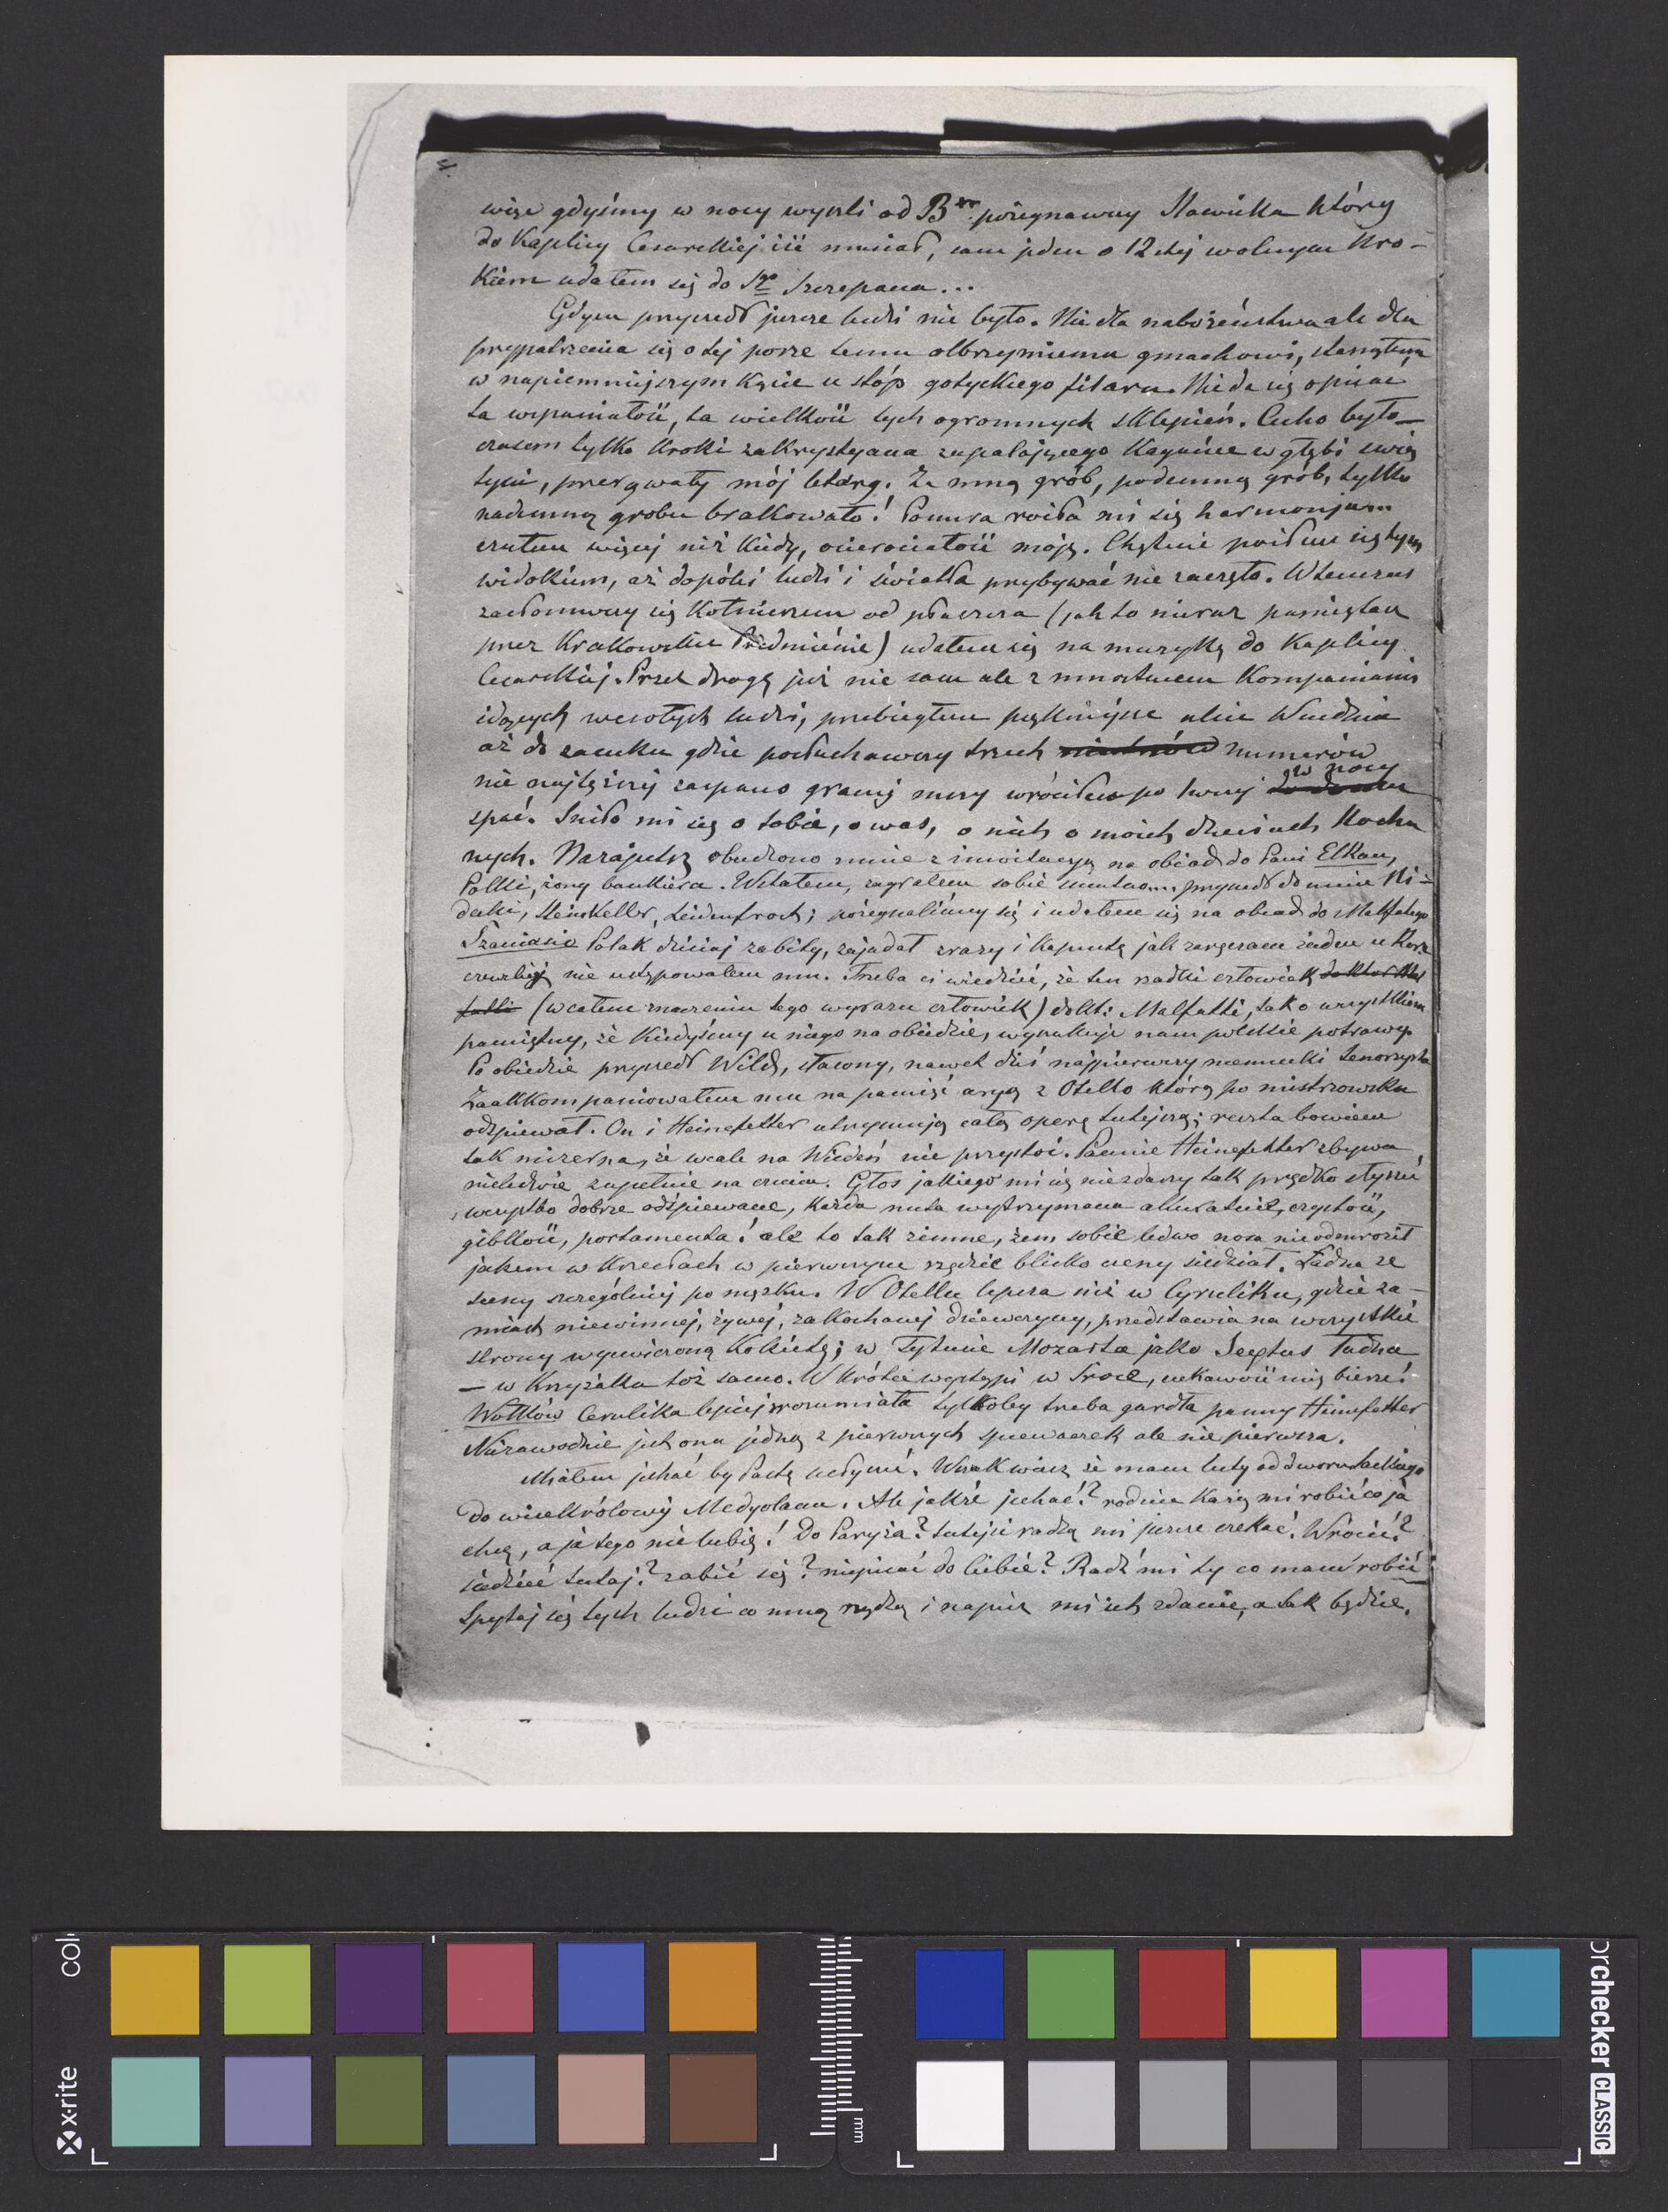 więc gdyśmy w nocy wyszli od B. pożegnawszy Slawika który
do Kaplicy Cesarskiej iść musiał, sam jeden o 12stej wolnym kro-
kiem udałem się do Sgo Szczepana...
Gdym przyszedł jeszcze ludzi nie było. Nie dla nabożeństwa ale dla
przypatrzenia się o tej porze temu olbrzymiemu gmachowi, stanąłem
w najciemniejszym kącie u stóp gotyckiego filaru. Nie da się opisać
ta wspaniałość, ta wielkość tych ogromnych sklepień. Cicho było—
czasem tylko kroki zakrystyana zapalającego kagańce w głębi świą
tyni, przerywały mój letarg. Za mną grób, podemną grób, tylko
nademną grobu brakowało! Ponura roiła mi się harmonja...
czułem więcej niż kiedy, osierociałość moją.
widokiem, aż dopóki ludzi i światła przybywać nie zaczęło. Wtenczas
zasłoniwszy się kołnierzem od płaszcza (jak to nieraz pamiętasz
przez Krakowskie Przedmieście) udałem się na muzykę do Kaplicy
Cesarskiej. Przez drogę już nie sam ale z mnóstwem kompaniami
idących wesołych ludzi, przebiegłem piękniejsze ulice Wiednia
aż do zamku gdzie posłuchawszy trzech numerów
nie najtężej zaspano granej mszy wróciłem po 1wszej w nocy
spać. Śniło mi się o tobie, o was, o nich, o moich dzieciach kocha
nych. Nazajutrz obudzono mnie z inwitacyą na obiad do Pani Elkan,
Polki, żony bankiera. Wstałem, zagrałem sobie smutno... przyszedł do mnie Ni-
decki, Steinkeller, Leidenfrost; pożegnaliśmy się i udałem się na obiad do Malfatego
Szaniasio Polak dzisiaj zabity, zajadał zrazy i kapustę jak żaden u
nie ustępowałem mu. Trzeba ci wiedzieć, że ten rzadki człowiek doktor Mal
fatti (w całem znaczeniu tego wyrazu człowiek) dokt: Malfatti, tak o wszystkiem
pamiętny, że kiedyśmy u niego na obiedzie, wyszukuje nam polskie potrawy.
Po obiedzie przyszedł Wild, sławny, nawet dziś najpierwszy niemiecki tenorzysta
Zaakkompaniowałem mu na pamięć aryą z Otello którą po mistrzowsku
odśpiewał. On i Heinefetter utrzymują całą operę tutejszą; reszta bowiem
tak mizerna, że wcale na Wiedeń nie przystoi. Pannie Heinefetter zbywa
nieledwie zupełnie na czuciu. Głos jakiego mi się nie zdarzy tak prędko słyszeć,
wszystko dobrze odśpiewane, każda nuta wytrzymana akuratnie, czystość,
gibkość, portamenta! ale to tak zimne, żem sobie ledwo nosa nie odmroził
jakem w krzesłach w pierwszym rzędzie blisko sceny siedział. Ładna ze
sceny szczególniej po męzku. W Otellu lepsza niż w Cyruliku, gdzie za-
miast niewinnej, żywej, zakochanej dziewczyny, przedstawia na wszystkie
strony wyćwiczoną kokietę; w Tytusie Mozarta jako Sextus ładna
— w Krzyżaku toż samo. W krótce wystąpi w Sroce, ciekawość mię bierze!
Wołków Cerulika lepiej zrozumiała tylkoby trzeba gardła panny Heinefetter
Niezawodnie jest ona jedną z pierwszych spiewaczek ale nie pierwsza.
Miałem jechać by Pastę usłyszeć. Wszak wiesz że mam listy od dworu Saskiego
do wicekrólowy Medyolanu. Ale jakże jechać? rodzice każą mi robić co ja
chcę, a ja tego nie lubię! Do Paryża? tutejsi radzą mi jeszcze czekać. Wrócić?
siedzieć tutaj? zabić się? niepisać do Ciebie? Radź mi ty co mam robić!
Spytaj się tych ludzi co mną rządzą i napisz mi ich zdanie, a tak będzie.
x-rite
colorchecker CLASSIC
mm